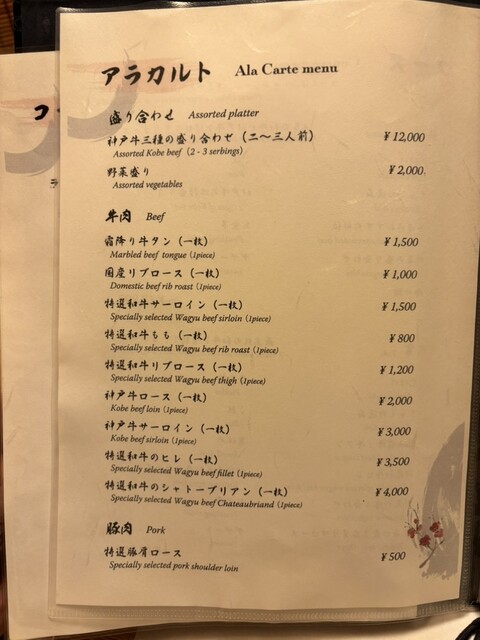 アラカルト Ala Carte menu
盛り合わせ Assorted platter
神戸牛三種の盛り合わせ（二〜三人前） ¥12,000
Assorted Kobe beef（2 - 3 serbings）
野菜盛り ¥2,000
Assorted vegetables
牛肉 Beef
霜降り牛タン（一枚） ¥1,500
Marbled beef tongue（1piece）
国産リブロース（一枚） ¥1,000
Domestic beef rib roast（1piece）
特選和牛サーロイン（一枚） ¥1,500
Specially selected Wagyu beef sirloin（1piece）
特選和牛もも（一枚） ¥800
Specially selected Wagyu beef rib roast（1piece）
特選和牛リブロース（一枚） ¥1,200
Specially selected Wagyu beef thigh（1piece）
神戸牛ロース（一枚） ¥2,000
Kobe beef loin（1piece）
神戸牛サーロイン（一枚） ¥3,000
Kobe beef sirloin（1piece）
特選和牛のヒレ（一枚） ¥3,500
Specially selected Wagyu beef fillet（1piece）
特選和牛のシャトーブリアン（一枚） ¥4,000
Specially selected Wagyu beef Chateaubriand（1piece）
豚肉 Pork
特選豚肩ロース ¥500
Specially selected pork shoulder loin